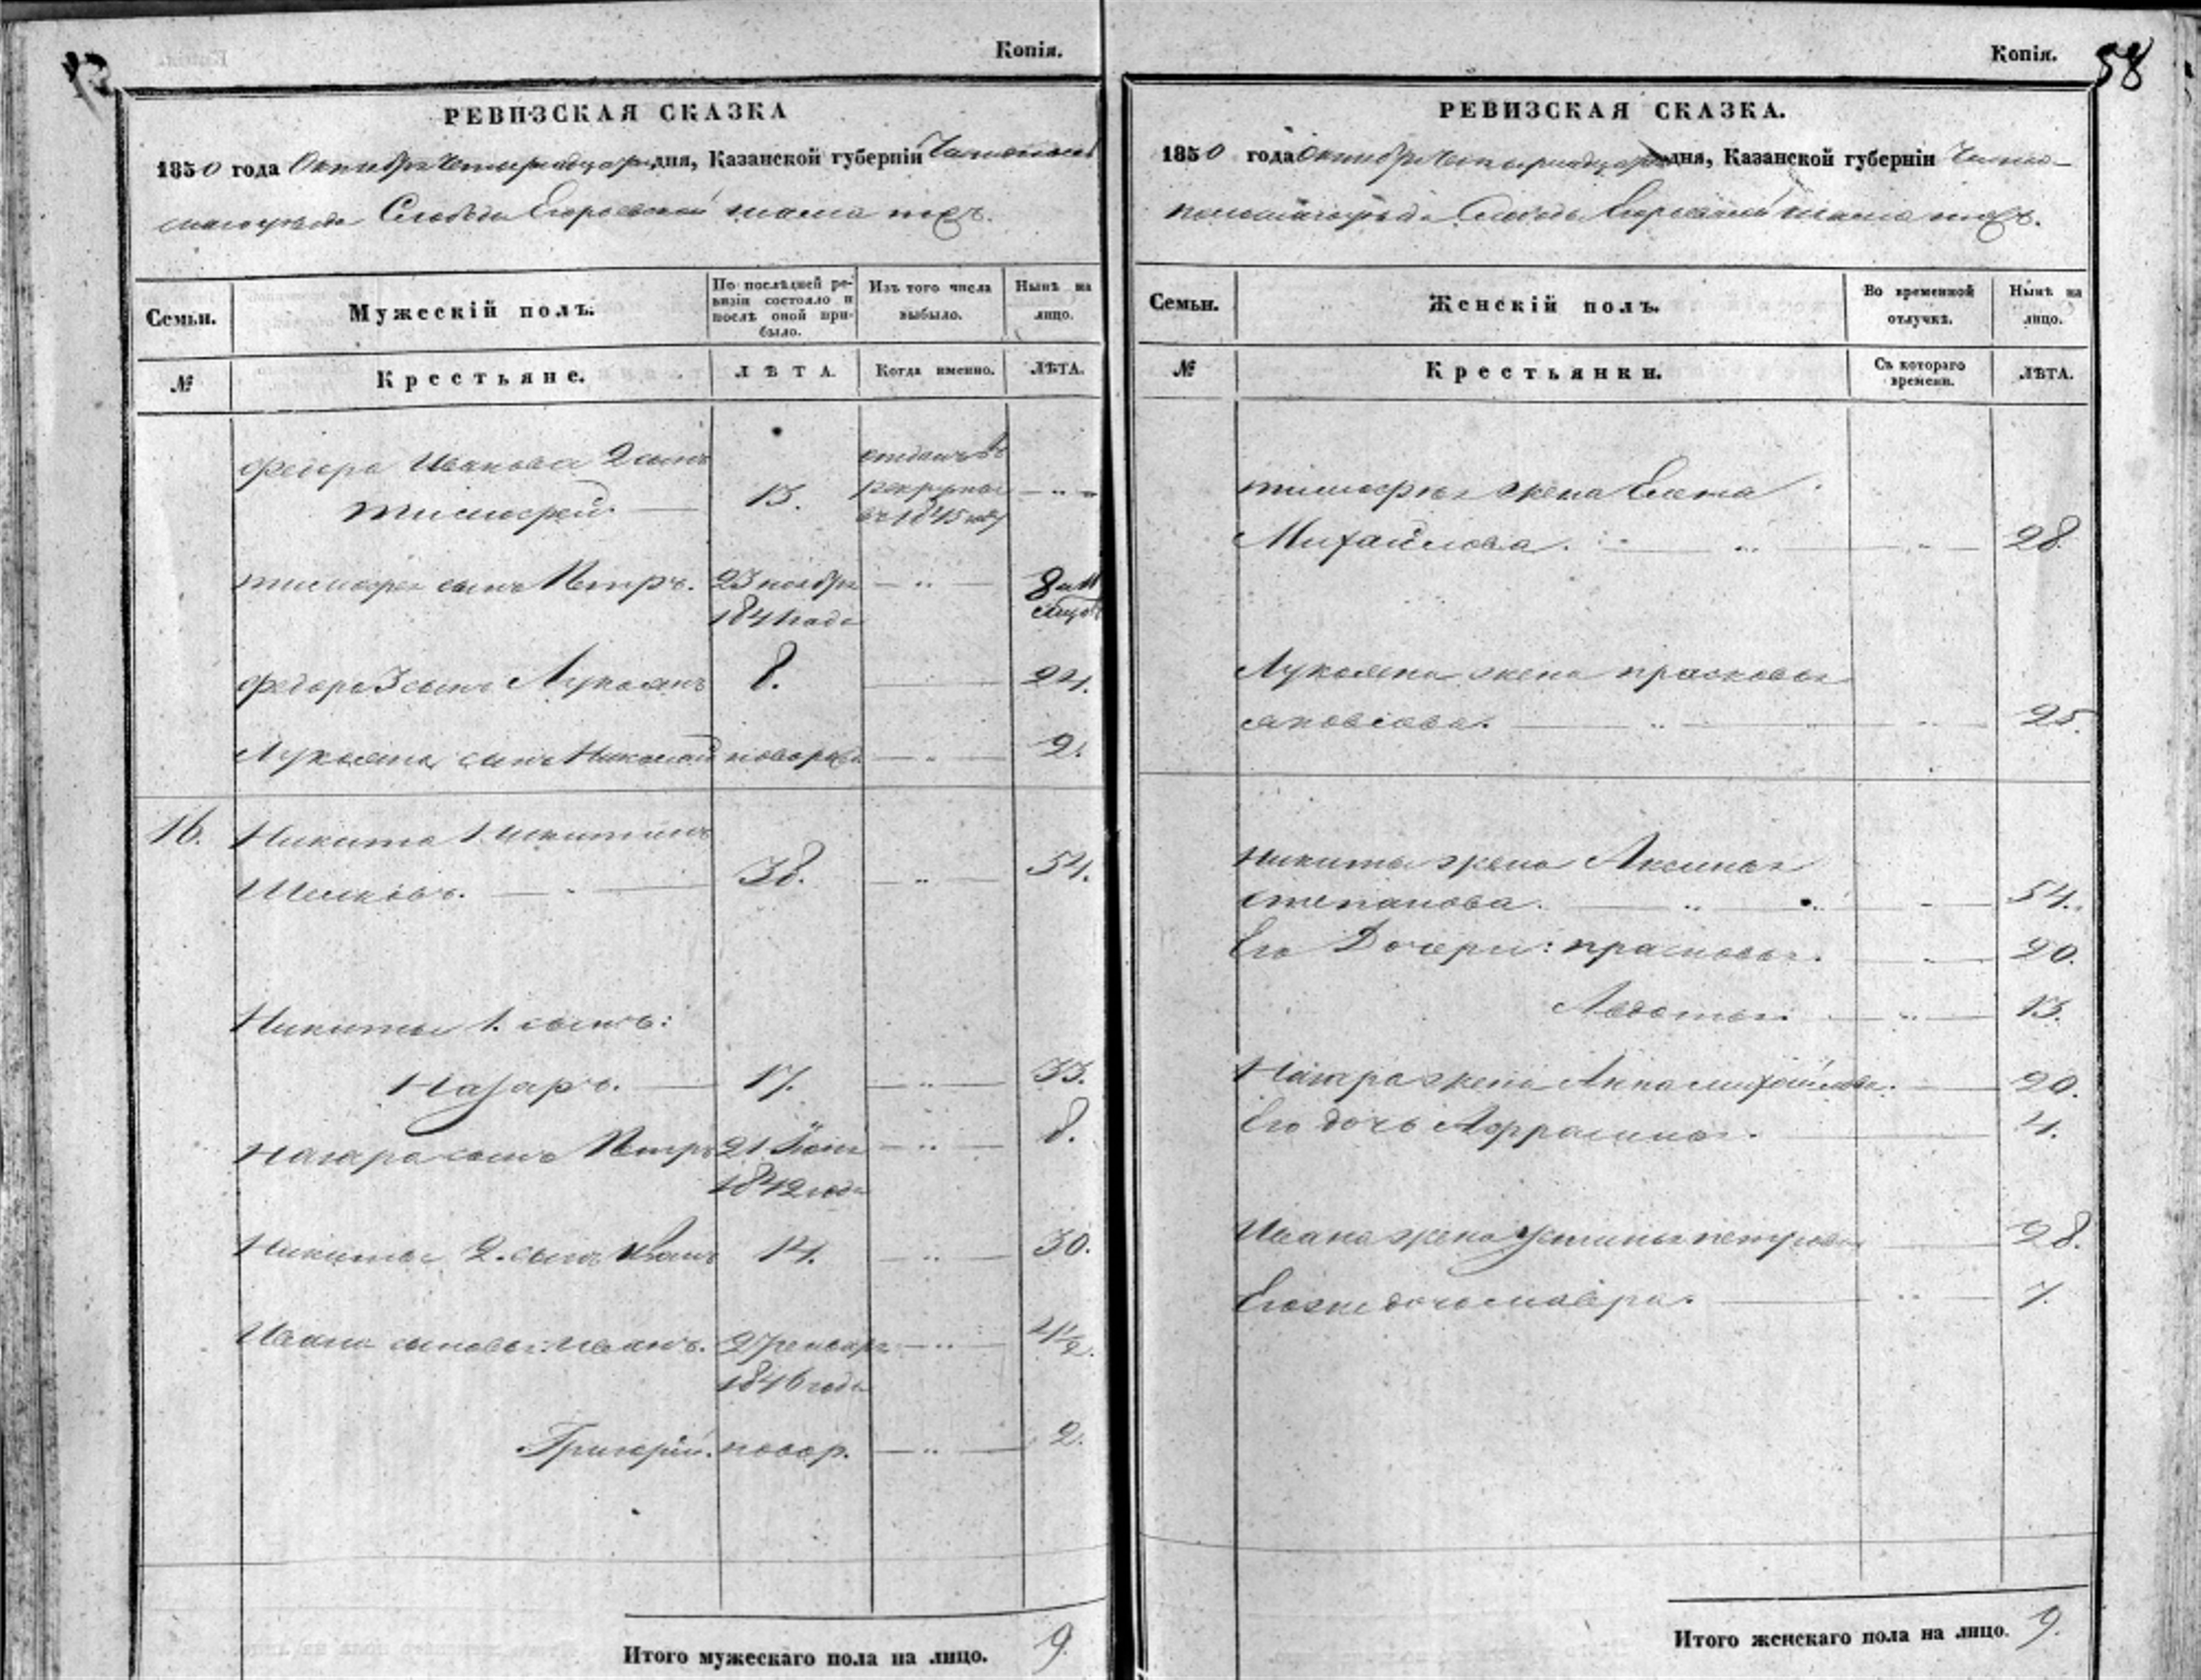 Копія.
РЕВИЗСКАЯ СКАЗКА
1850 года Октября четырнадцаго дня, Казанской губерніи
Слободы Егорьевской
Семьи.
Мужескій полъ.
По послѣдней ре-
визіи состояло и
послѣ оной при-
было.
Изъ того числа
выбыло.
Нынѣ на
лицо.
№
Крестьяне.
ЛѢТА.
Когда именно.
ЛѢТА.
Федора Иванова 2 сынъ
Тимофей
13.
отданъ в
рекруты
въ 1845 году
Тимофея сынъ Петръ.
23 ноября
1841 года
8 и 11
Федора 3 сынъ Лукоянъ
8.
24.
Лукояна сынъ Николай
новорож
2.
16.
Никита 1. Никитинъ
38.
54.
Никиты 1. сынъ:
Назаръ.
17.
33.
Назара сынъ Петръ
21 Іюня
1842 года
8.
Никиты 2. сынъ Иванъ
14.
30.
Ивана сыновья: Иванъ.
27 генваря
1846 года
4 1/2.
Григорій.
новор.
2.
Итого мужескаго пола на лицо.
9.
Копія.
58
РЕВИЗСКАЯ СКАЗКА.
1850 года Октября дня, Казанской губерніи Чисто-
польскаго уѣзда Слободы Егорьевской
Семьи.
Женскій полъ.
Во временной
отлучкѣ.
Нынѣ на
лицо.
№
Крестьянки.
Съ котораго
времени.
ЛѢТА.
Тимофея жена Елена
Михайлова.
28.
Лукояна жена Прасковья
Яковлева.
25.
Никиты жена Аксинья
Степанова.
54.
Его Дочери: Прасковья.
20.
Авдотья.
13.
Назара жена Анна Михайлова.
20.
Его дочь Афросинья.
4.
Ивана жена Устинья Петрова
28.
Его же дочь Мавра.
7.
Итого женскаго пола на лицо.
9.